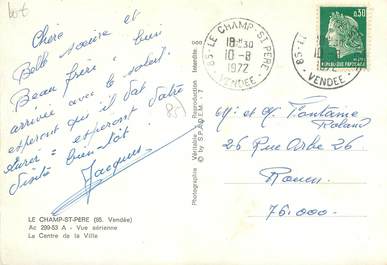 Chère
Belle soeure et
Beau frère " bien
arrivée avec le soleil.
esperont qu'il dat
durer " esperont votre
visite bientôt.
Jacques
LE CHAMP-ST-PERE (85. Vendée)
Ac 299-53 A - Vue aérienne
Le Centre de la Ville
Photographie Véritable - Reproduction Interdite
© by S.P.A.D.E.M. - 7
85 - LE CHAMP-ST-PERE
18H30
10-8
1972
VENDEE
85 - LE
10
1972
VENDEE
0,30
REPUBLIQUE FRANÇAISE
Mr et Me Fontaine
Roland
26 Rue Arbe 26
Rouen
76.000